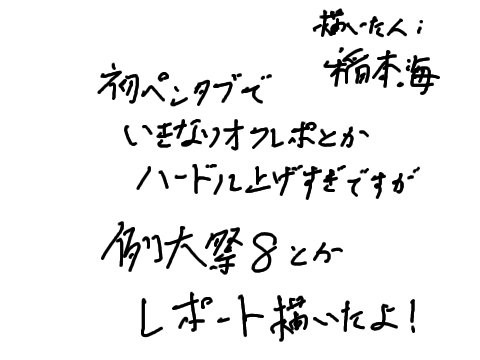 描いた人；
稲本海
初ペンタブで
いきなりオフレポとか
ハードル上げすぎですが
例大祭8とか
レポート描いたよ！